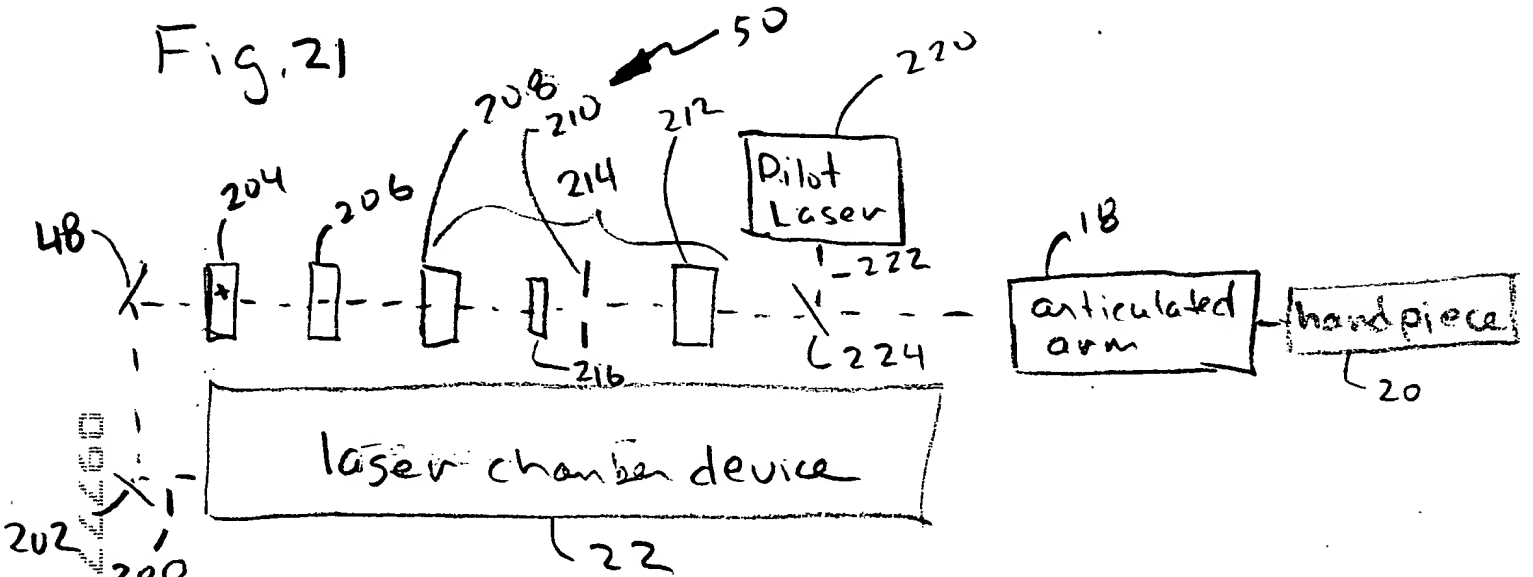 Fig. 21
50
220
208
210
212
204
206
214
48
Pilot
Laser
18
222
articulated
arm
handpiece
224
216
20
laser chamber device
202
200
22